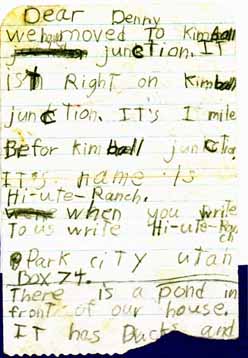 Dear Denny
we moved To kimball
junction. IT
is Right on kimball
junction. IT's 1 mile
Befor kimball junction.
IT's name Is
Hi-ute-Ranch.
when you write
To us write Hi-ute-Ranch
Park city utah
Box 74.
There is a pond in
front of our house.
IT has Ducks and